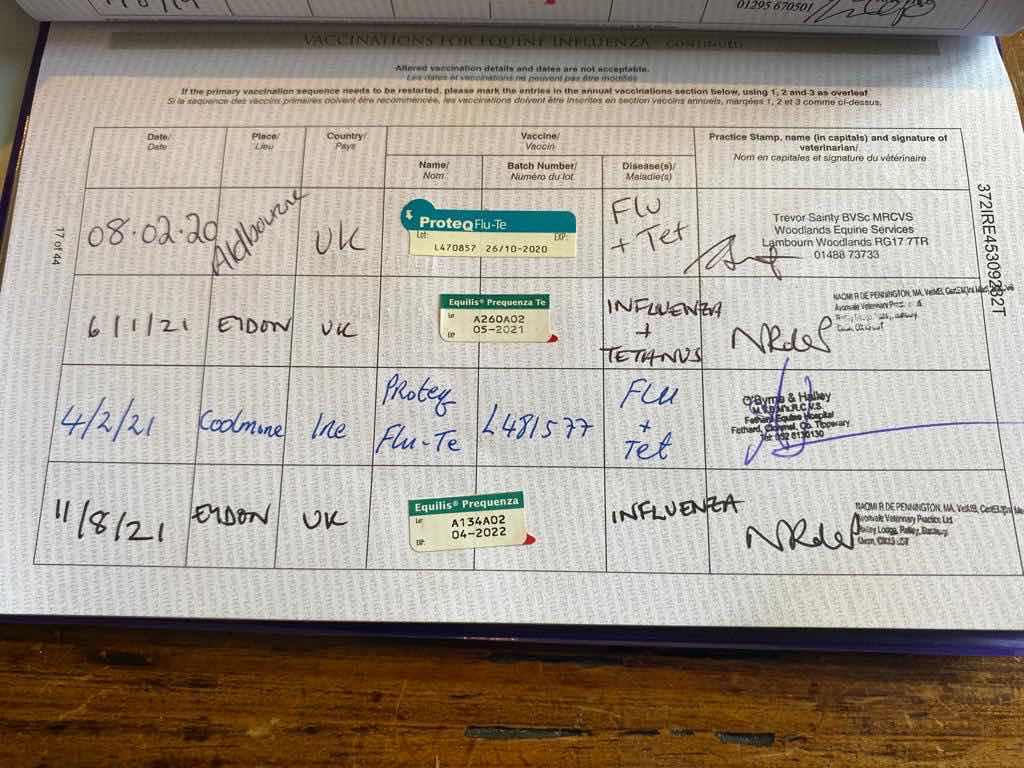 01295 670501
VACCINATIONS FOR EQUINE INFLUENZA CONTINUED
Altered vaccination details and dates are not acceptable.
Les dates et vaccinations ne peuvent pas être modifiés
If the primary vaccination sequence needs to be restarted, please mark the entries in the annual vaccinations section below, using 1, 2 and 3 as overleaf
Si la sequence des vaccins primaires doivent être recommencée, les vaccinations doivent être inscrites en section vaccins annuels, marquées 1, 2 et 3 comme ci-dessus.
Date/
Date
Place/
Lieu
Country/
Pays
Vaccine/
Vaccin
Name/
Nom
Batch Number/
Numéro du lot
Disease(s)/
Maladie(s)
Practice Stamp, name (in capitals) and signature of
veterinarian/
Nom en capitales et signature du vétérinaire
08.02.20
Aldbourne
UK
ProteqFlu-Te
Lot: EXP:
L470857 26/10-2020
FLU
+ Tet
Trevor Sainty BVSc MRCVS
Woodlands Equine Services
Lambourn Woodlands RG17 7TR
01488 73733
6/1/21
EYDON
UK
Equilis® Prequenza Te
A260A02
05-2021
INFLUENZA
+
TETANUS
NAOMI R DE PENNINGTON, MA, VetMB,
Avonvale Veterinary
4/2/21
Coolmore
Ire
Proteq
Flu-Te
L481577
FLU
+
Tet
O'Byrne & Halley
Fethard Equine Hospital
Fethard, Clonmel, Co. Tipperary
Tel: 052 6130130
11/8/21
EYDON
UK
Equilis® Prequenza
A134A02
04-2022
INFLUENZA
NAOMI R DE PENNINGTON, MA, VetMB,
Avonvale Veterinary Practice Ltd
17 of 44
372IRE45309282T